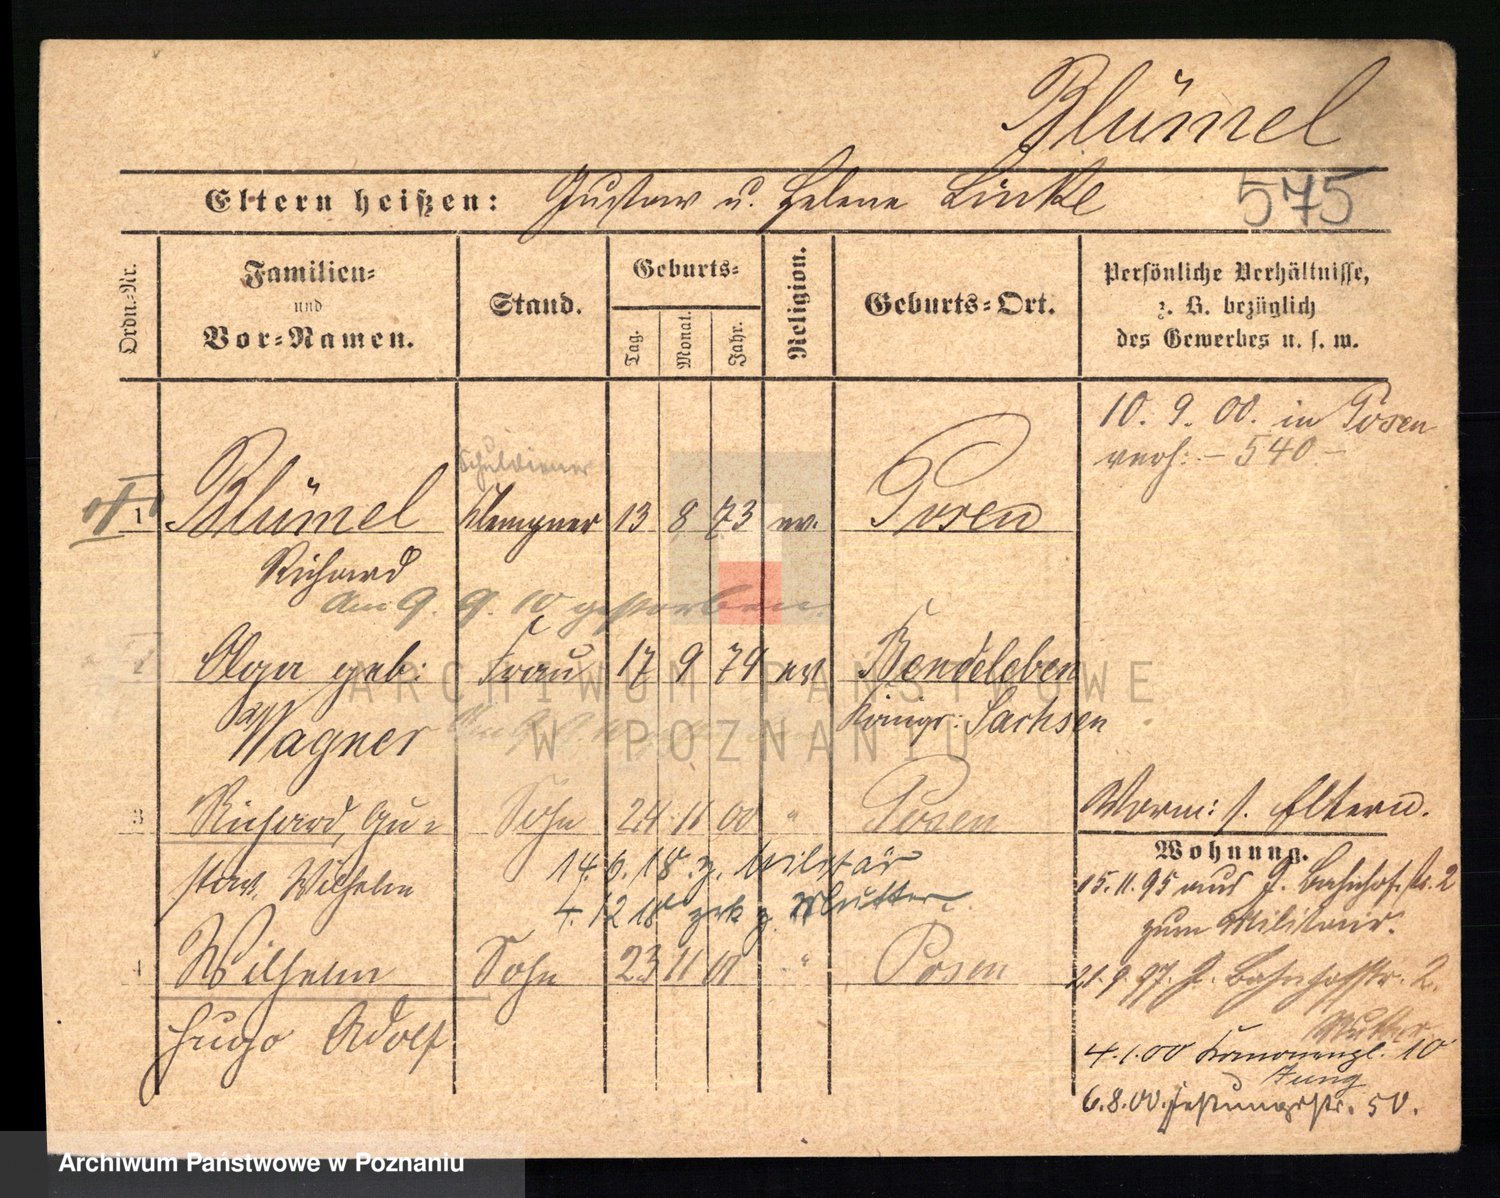 Blümel
Eltern heißen: Gustav u. Helene Linke
575
Ordn.-Nr.
Familien-
und
Vor-Namen.
Stand.
Geburts-
Tag.
Monat.
Jahr.
Religion.
Geburts-Ort.
Persönliche Verhältnisse,
z. B. bezüglich
des Gewerbes u. s. w.
10. 9. 00. in Posen
verh: – 540 –
Schuldiener
1 Blümel Klempner 13 8 73 ev. Posen
Richard
am 9. 9. 10 gestorben.
2 Olga geb: Frau 17 9 79 ev Bendeleben
Wagner Königr: Sachsen
3 Richard, Gu- Sohn 24 11 00 " Posen
stav, Wilhelm
14. 6. 18 z. Militär
4. 12 18 zrk z. Mutter
4 Wilhelm Sohn 23 11 01 " Posen
Hugo Adolf
Vorm: s. Eltern.
Wohnung.
15. 11. 95 aus Bahnhofstr. 2
zum Militair.
21. 9. 97. Bahnhofstr. 2.
Mutter
4. 1. 00 10
Jung
6. 8. 00. Festungsstr. 50.
ARCHIWUM PAŃSTWOWE
W POZNANIU
Archiwum Państwowe w Poznaniu